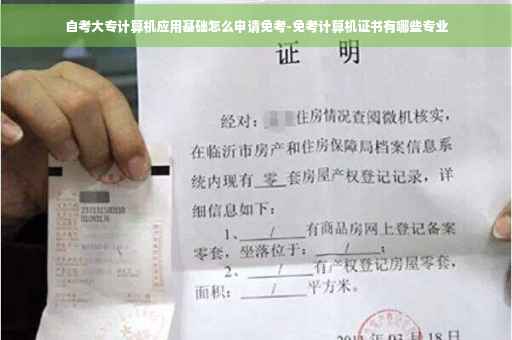 自考大专计算机应用基础怎么申请免考-免考计算机证书有哪些专业
证 明
经对：住房情况查阅微机核实，
在临沂市房产和住房保障局档案信息系
统内现有 零 套房屋产权登记记录，详
细信息如下：
1、 / 有商品房网上登记备案
零套，坐落位于： / ；
2、 / 有产权登记房屋零套，
面积： / 平方米。
年 03 月 18 日